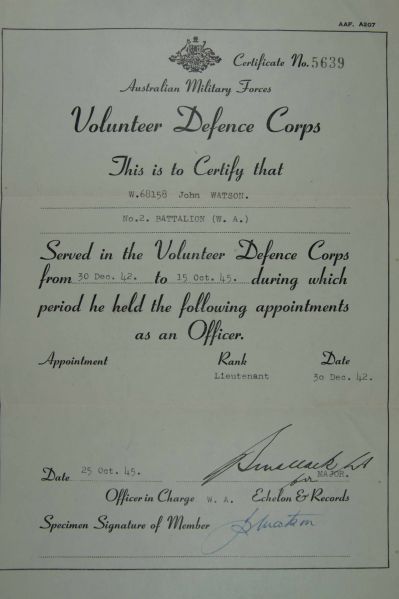 AAF. A207
Certificate No. 5639
Australian Military Forces
Volunteer Defence Corps
This is to Certify that
W.68158 John WATSON.
No.2. BATTALION (W. A.)
Served in the Volunteer Defence Corps
from 30 Dec. 42. to 15 Oct. 45. during which
period he held the following appointments
as an Officer.
Appointment Rank Date
Lieutenant 30 Dec. 42.
Date 25 Oct. 45. for MAJOR.
Officer in Charge W. A. Echelon & Records
Specimen Signature of Member J Watson